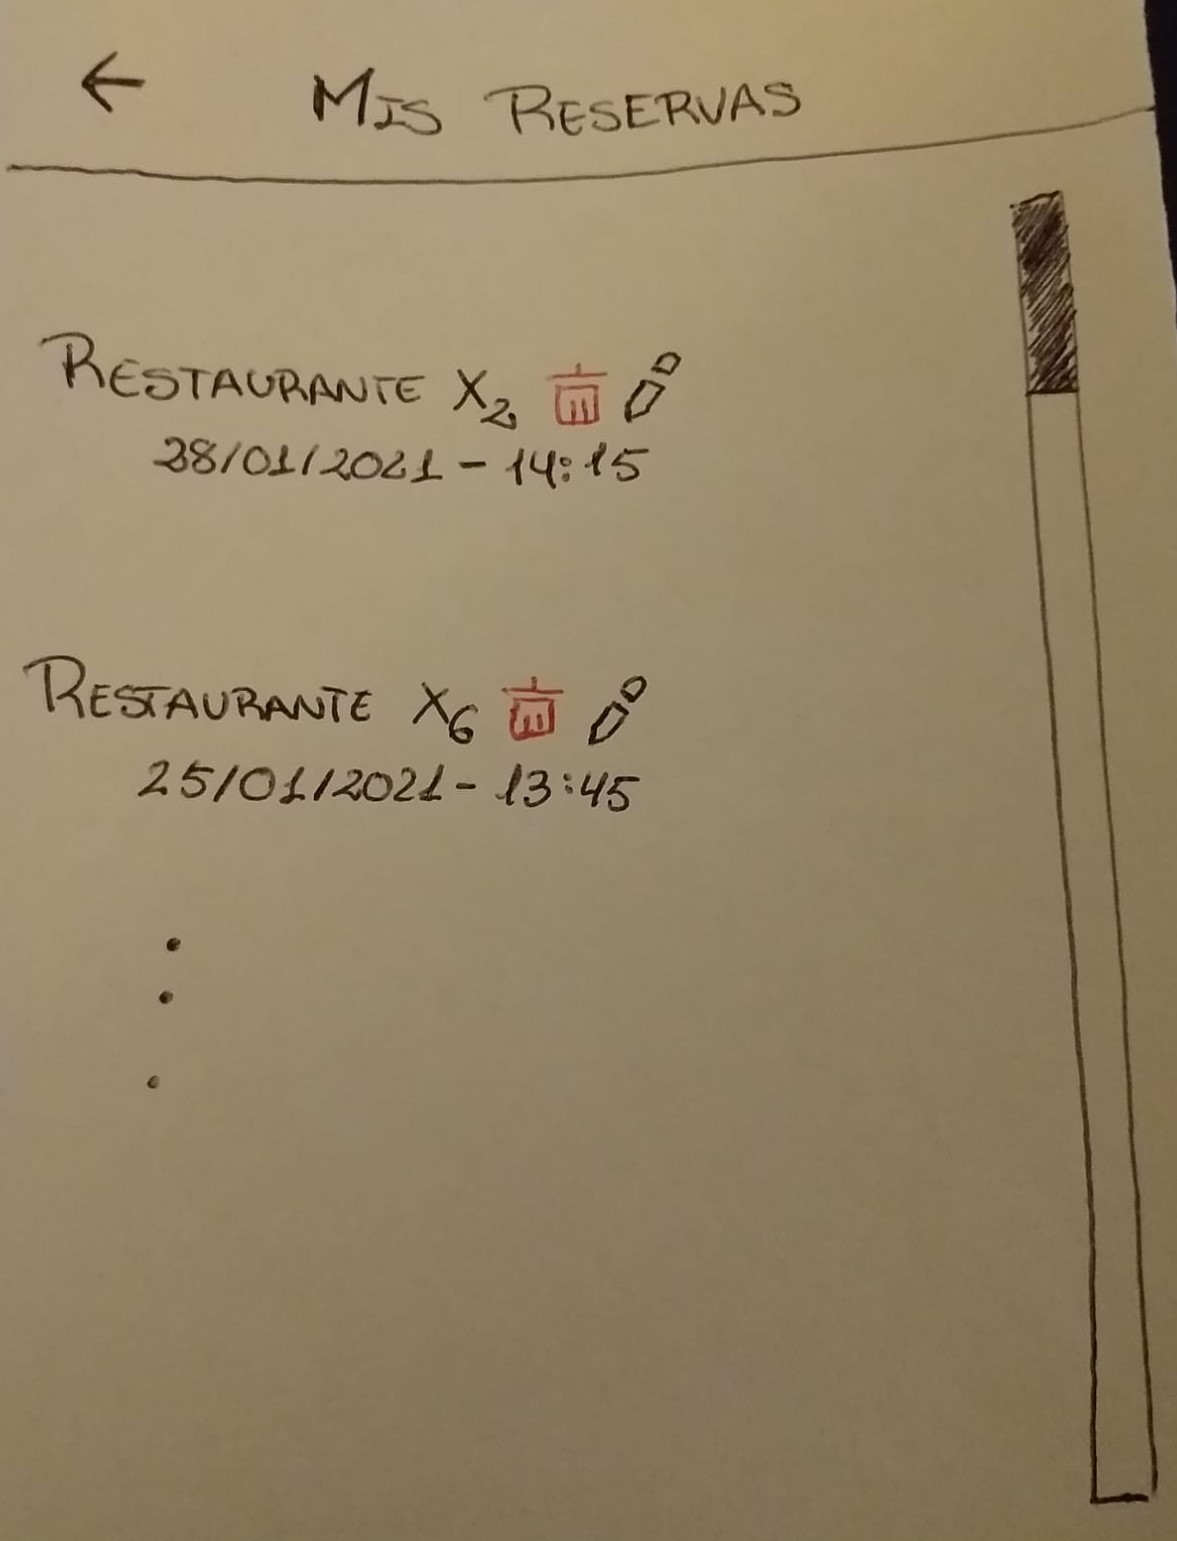 ← MIS RESERVAS
RESTAURANTE X2
28/01/2021 - 14:15
RESTAURANTE X6
25/01/2021 - 13:45